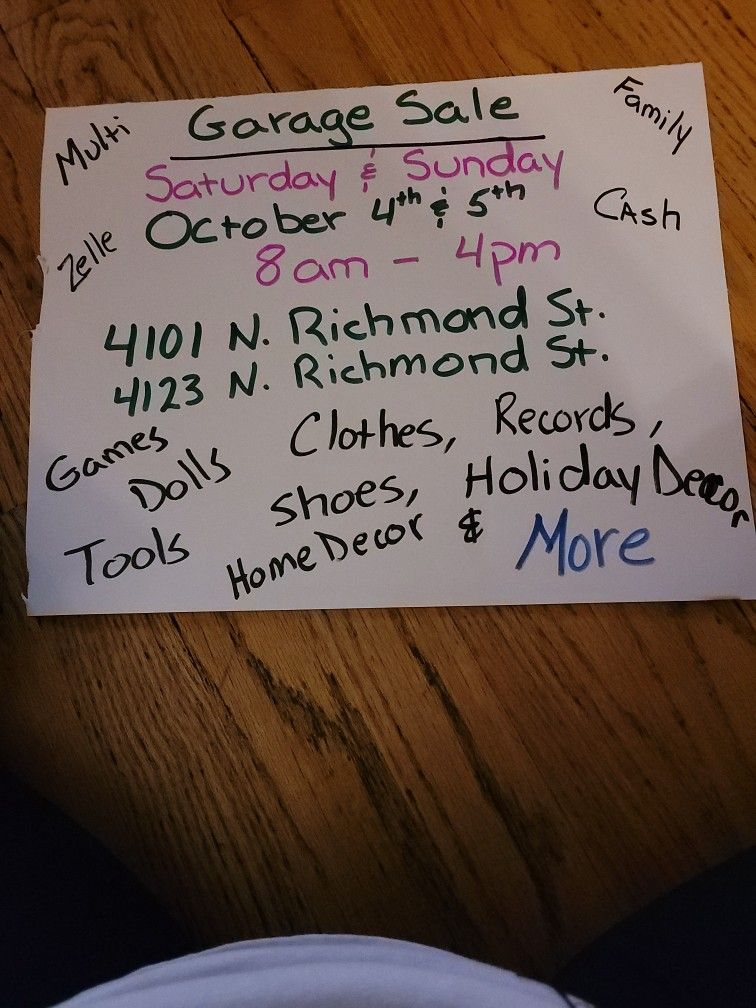 Multi Garage Sale Family
Saturday & Sunday
October 4th & 5th
Zelle Cash
8am - 4pm
4101 N. Richmond St.
4123 N. Richmond St.
Games Clothes, Records,
Dolls shoes, Holiday Decor
Tools Home Decor & More